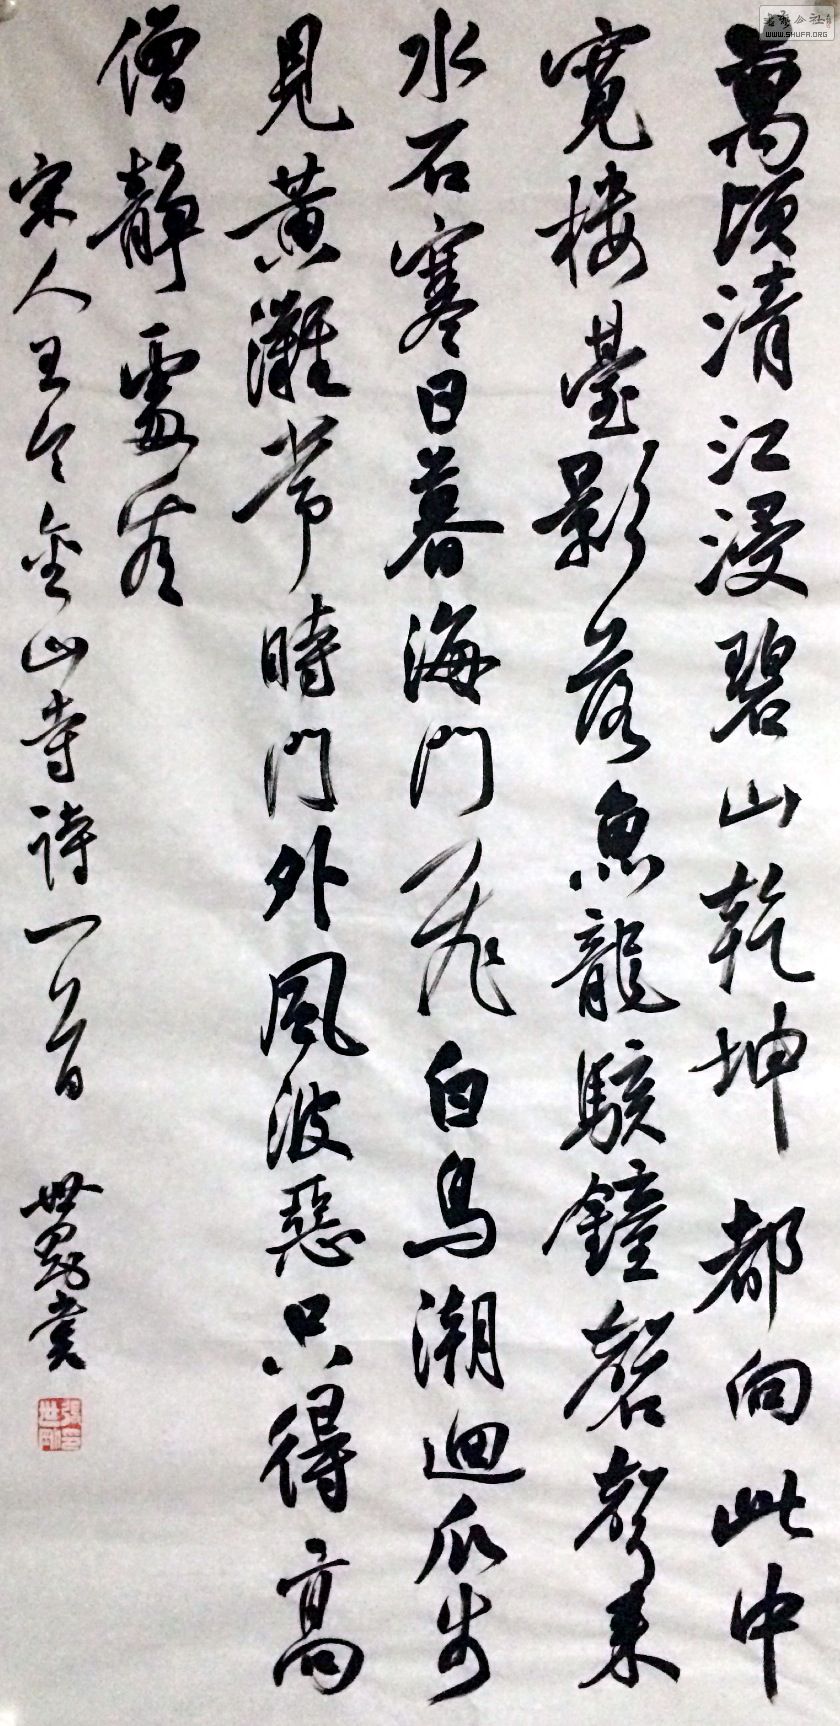 萬頃清江浸碧山乾坤都向此中
寬樓臺影落魚龍駭鐘磬聲来
水石寒日暮海門飛白鳥潮迴瓜步
見黃灘常時門外風波惡只得高
僧靜處看
宋人王令金山寺詩一首 世剛
張世剛印
WWW.SHUFA.ORG